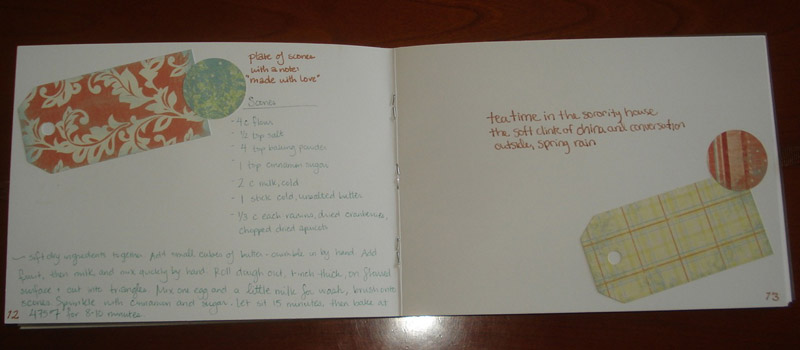 plate of scones
with a note:
"made with love"
Scones
- 4 c flour
- 1/2 tsp salt
- 4 tsp baking powder
- 1 tsp cinnamon sugar
- 2 c milk, cold
- 1 stick cold, unsalted butter
- 1/3 c each raisins, dried cranberries,
chopped dried apricots
sift dry ingredients together. Add small cubes of butter - crumble in by hand. Add
fruit, then milk and mix quickly by hand. Roll dough out, 1-inch thick, on floured
surface + cut into triangles. Mix one egg and a little milk for wash, brush onto
scones. Sprinkle with cinnamon and sugar. Let sit 15 minutes then bake at
475°F for 8-10 minutes.
12
teatime in the sorority house
the soft clink of china and conversation
outside, spring rain
13